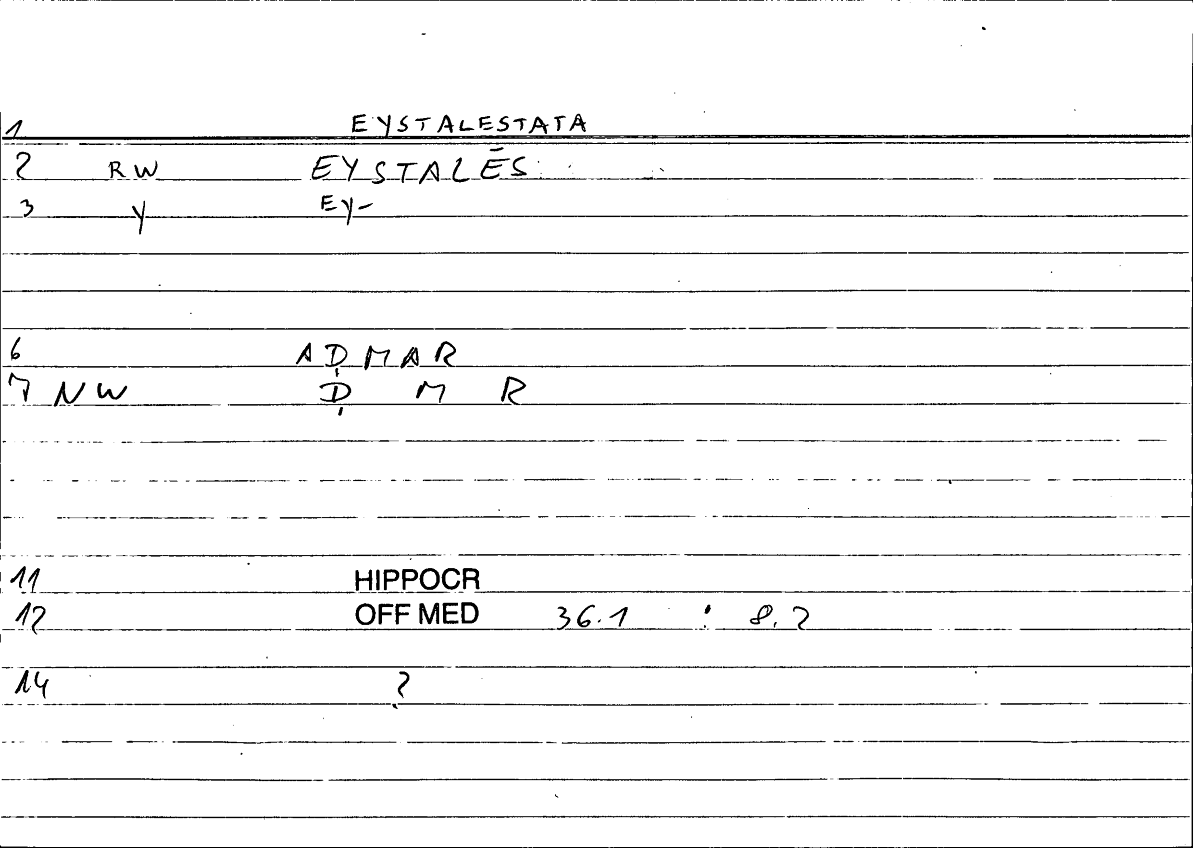 1 EYSTALESTATA
2 RW EYSTALĒS
3 Y EY-
6 AḌMAR
7 NW Ḍ M R
11 HIPPOCR
12 OFF MED 36.1 : 8.2
14 ?